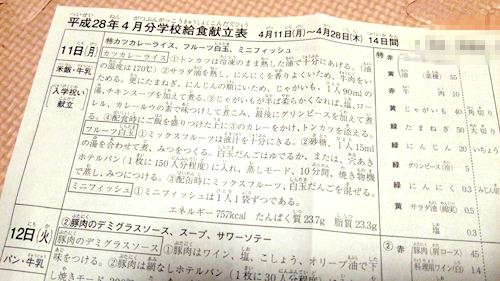 平成28年4月分学校給食献立表 4月11日(月)～4月28日(木) 14日間
11日(月)
米飯・牛乳
入学祝い
献立
特カツカレーライス、フルーツ白玉、ミニフィッシュ
カツカレーライス ①トンカツは冷凍のまま熱した油で十分にあげる。(油
の温度は170℃) ②サラダ油を熱し、にんにくを香りよくいため、牛肉をい
ためる。更にたまねぎ、にんじんの順にいため、じゃがいも、1人90mlの
湯、チキンスープを加えて煮る。③じゃがいもが半ば柔らかくなれば、塩、ロー
レル、カレールウの素で味つけして煮こみ、最後にグリンピースを加えて煮
る。④配食時にご飯を盛りつけた上に③のカレーをかけ、トンカツを添える。
フルーツ白玉 ①ミックスフルーツは液汁を十分にきる。②砂糖、1人15ml
の湯を合わせて煮、みつをつくる。白玉だんごはゆでるか、または、穴あき
ホテルパン(1枚に150人分程度)に入れ、蒸しモード、10分間、焼き物機
で蒸し、みつにつける。③配缶時にミックスフルーツ、白玉だんごを混ぜる。
ミニフィッシュ ①ミニフィッシュは1人1袋ずつである。
エネルギー 757kcal たんぱく質 23.7g 脂質 23.3g
特 赤
黄 油 (菜種) 55
赤 牛肉 10
黄 じゃがいも 40 角切り
緑 たまねぎ 50
緑 グリンピース(冷) 5
緑 にんじん 20
緑 にんにく 0.3 みじん切
黄 サラダ油(綿実) 0.5
塩 0.3
12日(火)
パン・牛乳
②豚肉のデミグラスソース、スープ、サワーソテー
豚肉のデミグラスソース ①豚肉はワイン、塩、こしょう、オリーブ油で下
味をつける。②豚肉は網なしホテルパン(1枚に30人分程度)
② 赤 豚肉(肩ロース) 45
料理用ワイン(白) 1.4